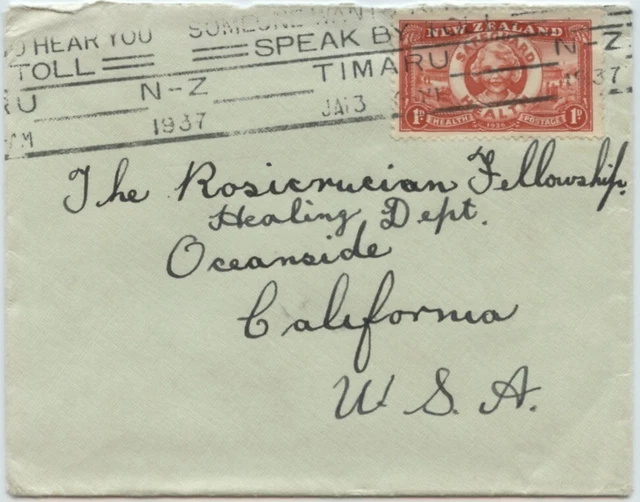 O HEAR YOU SOMEONE WANTS
TOLL SPEAK BY TOLL
RU N-Z TIMARU N-Z
AM 1937 JA13 1937
NEW ZEALAND
SAFEGUARD
HEALTH
1D HEALTH 1936 POSTAGE 1D
The Rosicrucian Fellowship.
Healing Dept.
Oceanside
California
U.S.A.